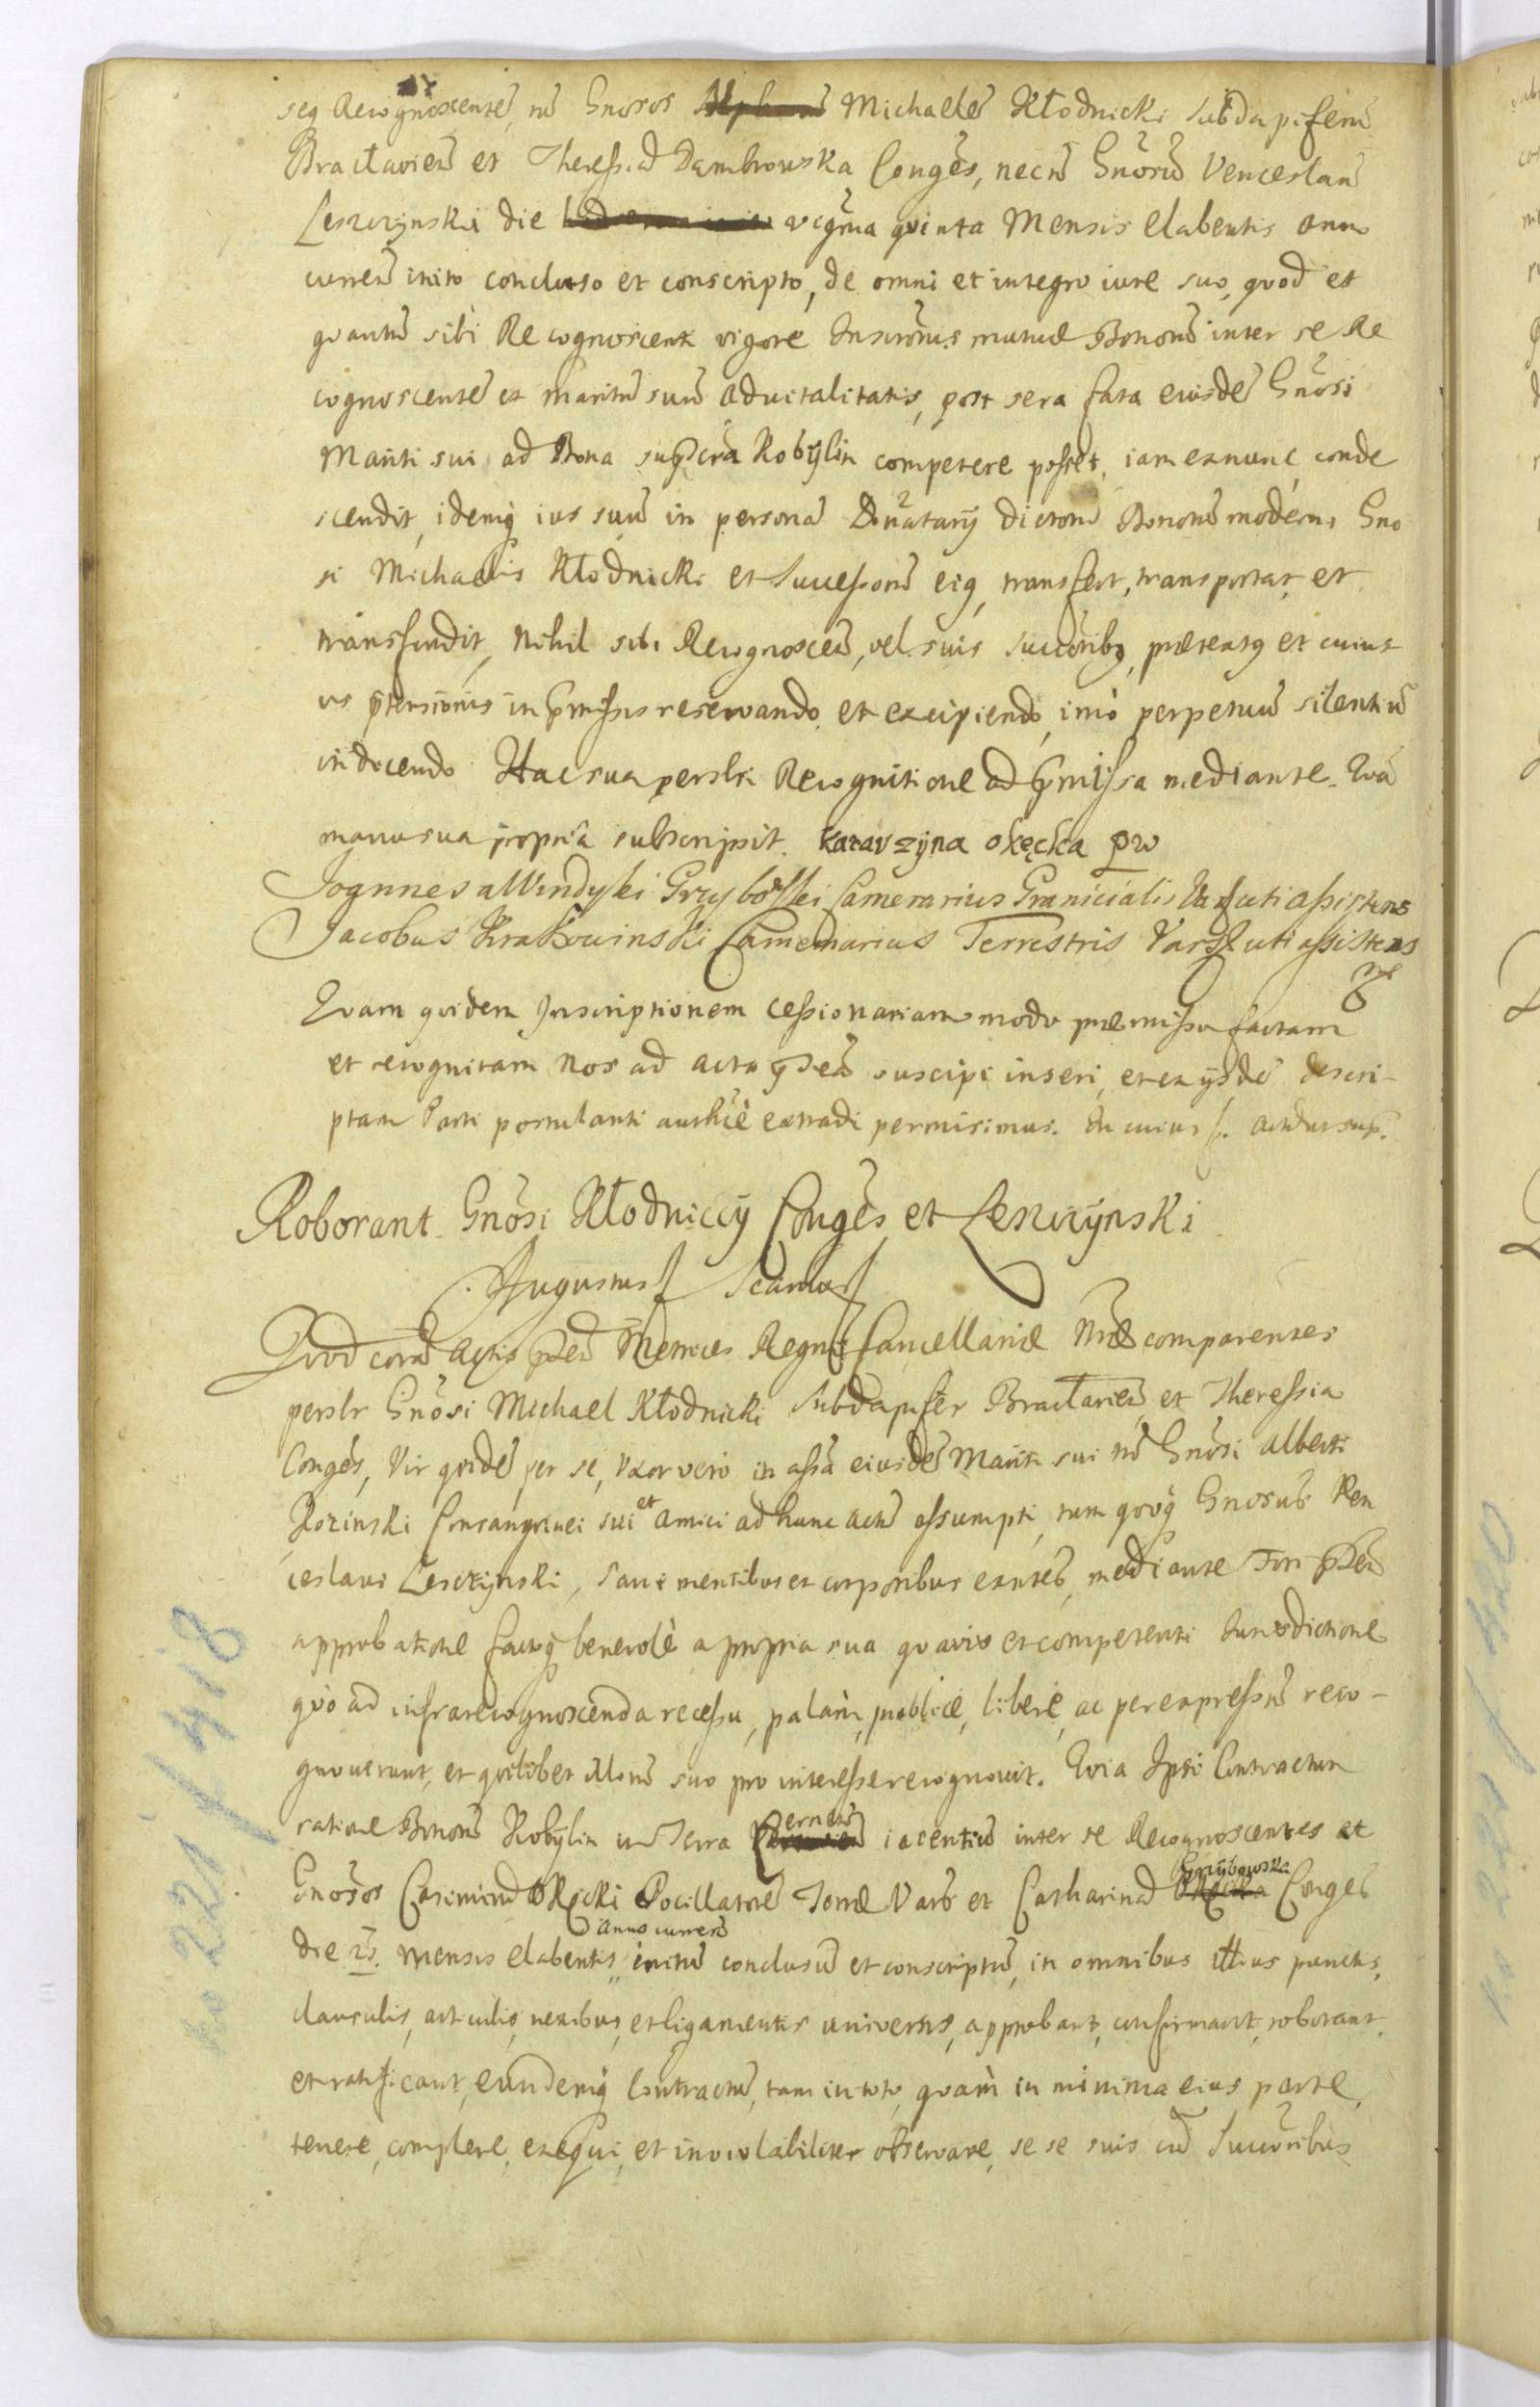 seq Recognoscentẽ, nõ Gnosos Michaelẽ Kłodnicki Subdapiferũ
Bracłavieñ et Theressiã Dambrowska Conges, necñ Gnosũ Venceslaũ
Leszczynski die vigma quinta Mensis elabentis anno
curreñ inito concluso et conscripto, de omni et integro iure suo, quod et
quantũ sibi Recognoscenti vigore Inscrõnis mutuæ Bonorũ inter se Re
cognoscentẽ et maritũ suũ advitalitatis, post sera fata eiusdẽ Gnosi
Mariti sui ad Bona supscrã Kobylin competere posset, iam exnunc conde
scendit, idemq ius suũ in personã Donatarij dictorũ Bonorũ moderni Gno
si Michaelis Kłodnicki et Successorũ eiq, transfert, transportat et
transfundit, Nihil sibi Recognosceñ, vel suis Succoribq, prætextq et cuius
vis ptensionis in pmissis reservando et excipiendo, imò perpetuũ silentiũ
inducendo Hac sua persli Recognitione ad pmissa mediante. Quã
manu sua propria subscripsit. Katarzyna okęcka pw
Joannes a Windyki Grzybowski Camerarius Granicialis Vars uti assistens
Jacobus Krakowinski Camerarius Terrestris Vars uti assistens
Quam quidem Inscriptionem cessionariam modo præmisso factam
et recognitam Nos ad acta pñtia suscipi inseri, et ex ijsdẽ descri-
ptam Parti postulanti authcè extradi permisimus. In cuius f. Act ut sup.
Roborant Gnosi Kłodniccÿ Conges et Leszczynski
Augustus Scandus
Quod corã Actis pñtibus Metrices Regni Cancellariæ Nræ comparentes
perslr Gnosi Michael Kłodnicki Subdapifer Bracłavieñ et Theressia
Conges, Vir quidẽ per se, Uxor vero in assã eiusdẽ Mariti sui nõ Gnosi Alberti
Kozinski Consanguinei sui et amici ad hunc actũ assumpti, tum quoq Gnosus Ven
ceslaus Leszczynski, sani mentibus et corporibus exntes, mediante Fori pñtis
approbatione factoq benevolè a propria sua quavis et competenti Iurisdictione
quò ad infrarecognoscenda recessu, palàm, publicè, liberè, ac per expressũ reco-
gnoverunt, et quilibet illorũ suo pro interesse recognovit. Quia Ipsi Contractum
ratione Bonorũ Kobylin in Terra Cerneñ iacentiũ inter se Recognoscentes et
Gnosos Casimirũ Okęcki Pocillatorẽ Terræ Vars et Catharinã Grzybowska Conges
die 25. mensis elabentis anno curreñ initũ conclusũ et conscriptũ, in omnibus illius punctis,
clausulis, articulis, nexibus, et ligamentis universis, approbant, confirmant, roborant
et ratificant, eundemq Contractũ, tam in toto, quàm in minima eius parte,
tenere, complere, exequi, et inviolabiliter observare, se se suis cũ Succoribus
No 221 f 418